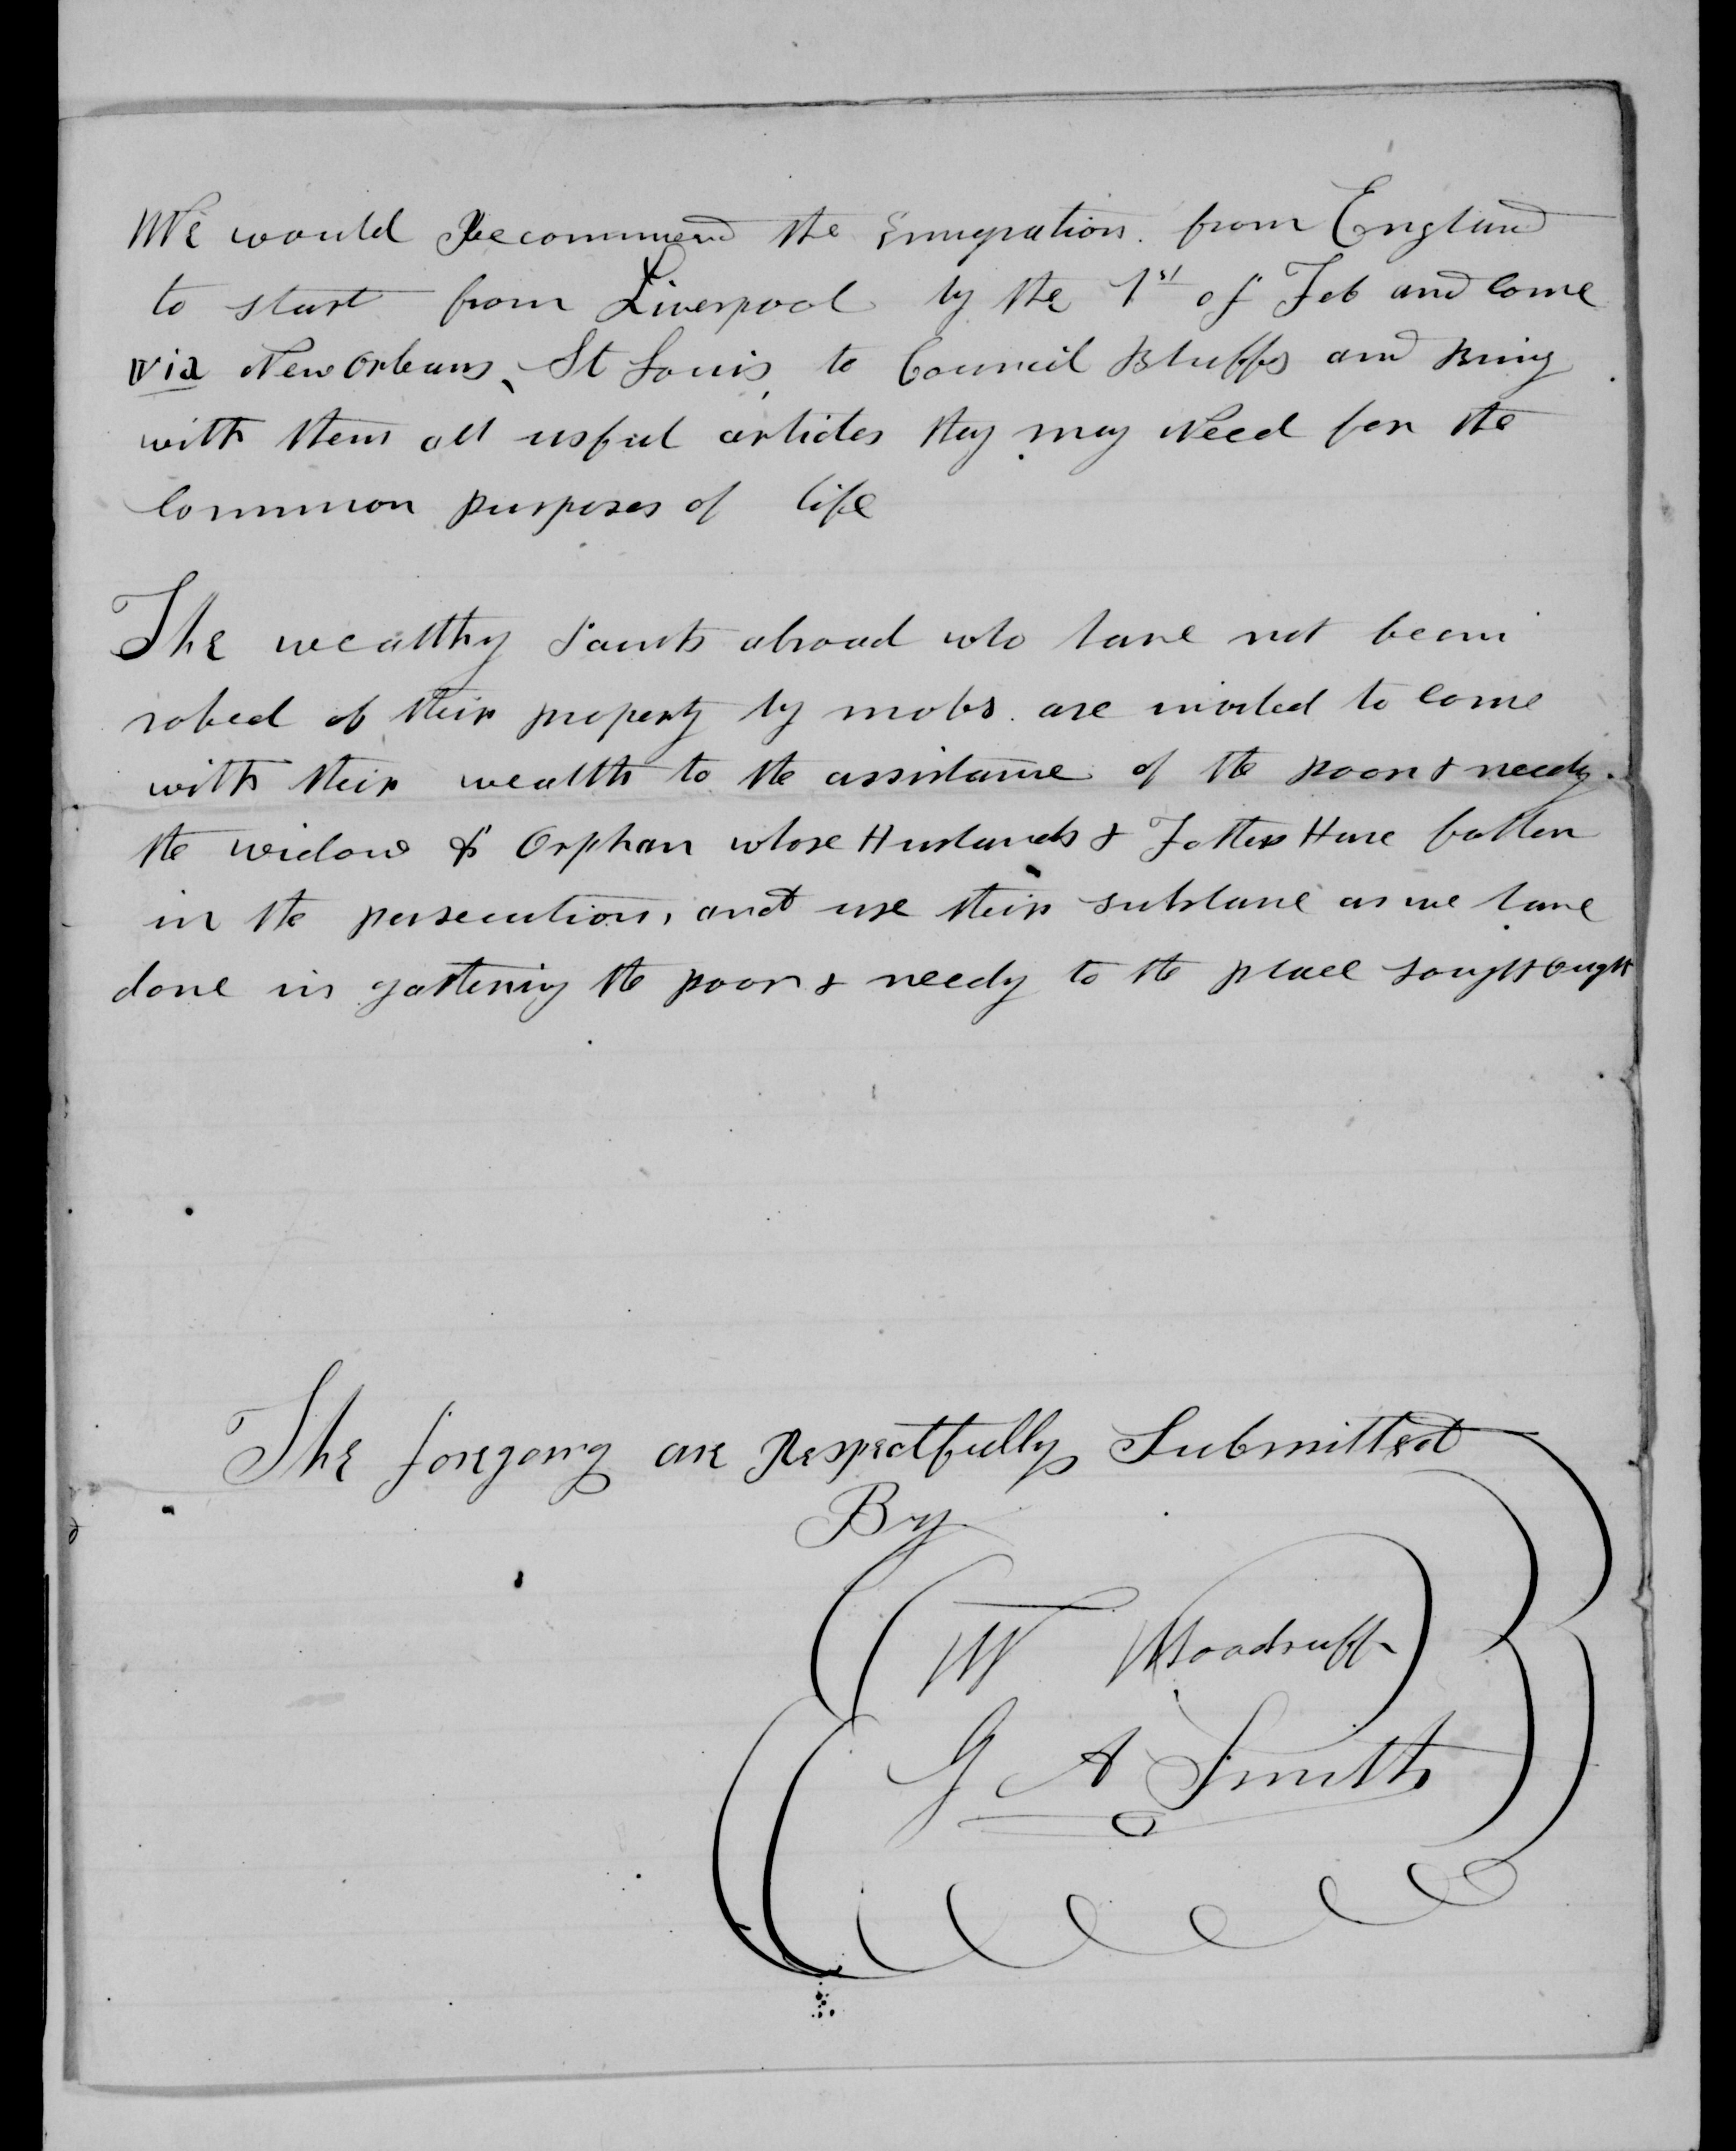 We would Recommend the Emigration. from England
to start from Liverpool by the 1st of Feb and come
via New Orleans, St Louis, to Council Bluffs and Bring
with them all usful articles they may Need for the
common purposes of life
The wealthy Saints abroad who have not been
robed of their property by mobs. are invited to come
with their wealth to the assistance of the poor & needy.
the widow & Orphan whose Husbands & Fathers Have fallen
in the persecution, and use their substance as we have
done in gathering the poor & needy to the place sought
The foregong are Respectfully Submitted
By
W Woodruff
G A Smith